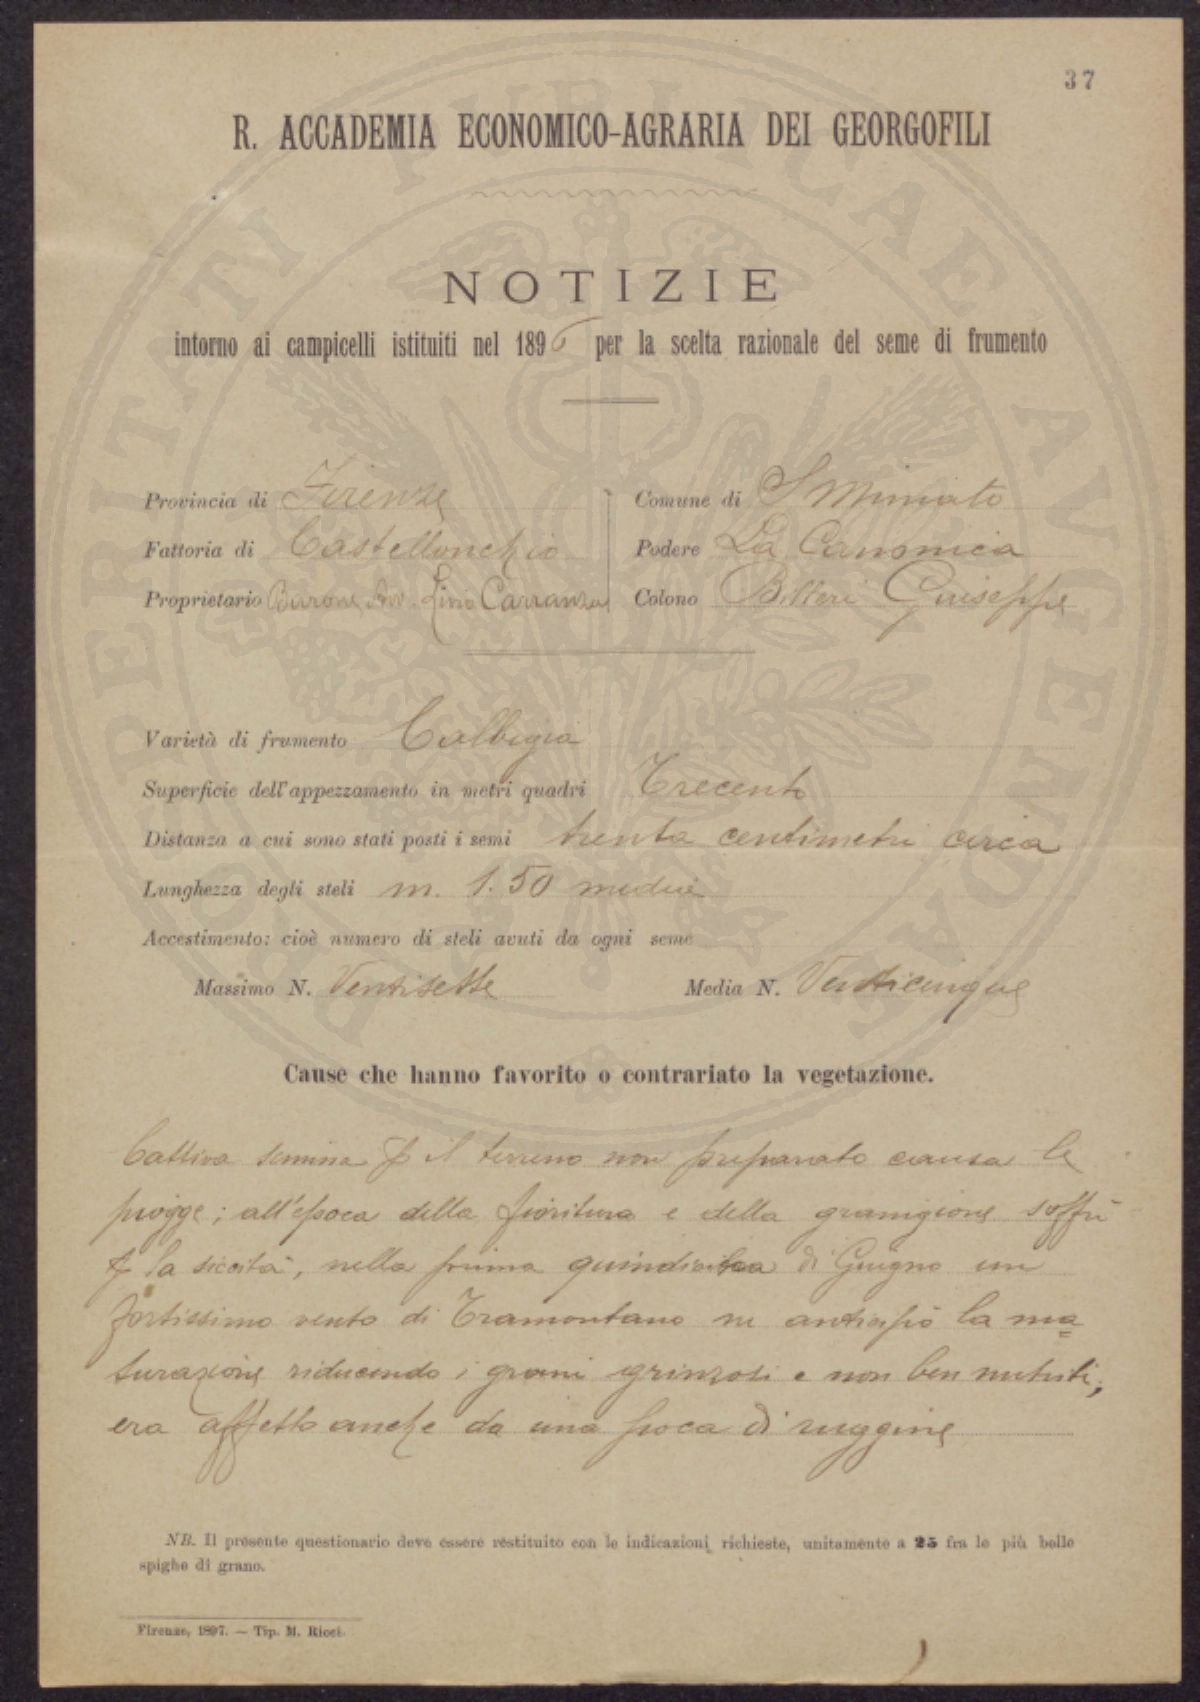 37
R. ACCADEMIA ECONOMICO-AGRARIA DEI GEORGOFILI
NOTIZIE
intorno ai campicelli istituiti nel 1896 per la scelta razionale del seme di frumento
Provincia di Firenze
Fattoria di Castellonchio
Proprietario Barone Avv. Livio Carranza
Comune di S Miniato
Podere La Canonica
Colono Giuseppe
Varietà di frumento Calbigia
Superficie dell'appezzamento in metri quadri Trecento
Distanza a cui sono stati posti i semi trenta centimetri circa
Lunghezza degli steli m. 1.50 media
Accestimento: cioè numero di steli avuti da ogni seme
Massimo N. Ventisette Media N. Venticinque
Cause che hanno favorito o contrariato la vegetazione.
Cattiva semina p il terreno non preparato causa le
piogge; all'epoca della fioritura e della granigione soffrì
p la siccità, nella prima quindicina di Giugno un
fortissimo vento di Tramontano ne anticipò la ma=
turazione riducendo i grani grinzosi e non ben nutriti,
era affetto anche da una poca di ruggine
NB. Il presente questionario deve essere restituito con le indicazioni richieste, unitamente a 25 fra le più belle
spighe di grano.
Firenze, 1897. — Tip. M. Ricci.
BENEMERITI PUBLICAE AUGENDAE